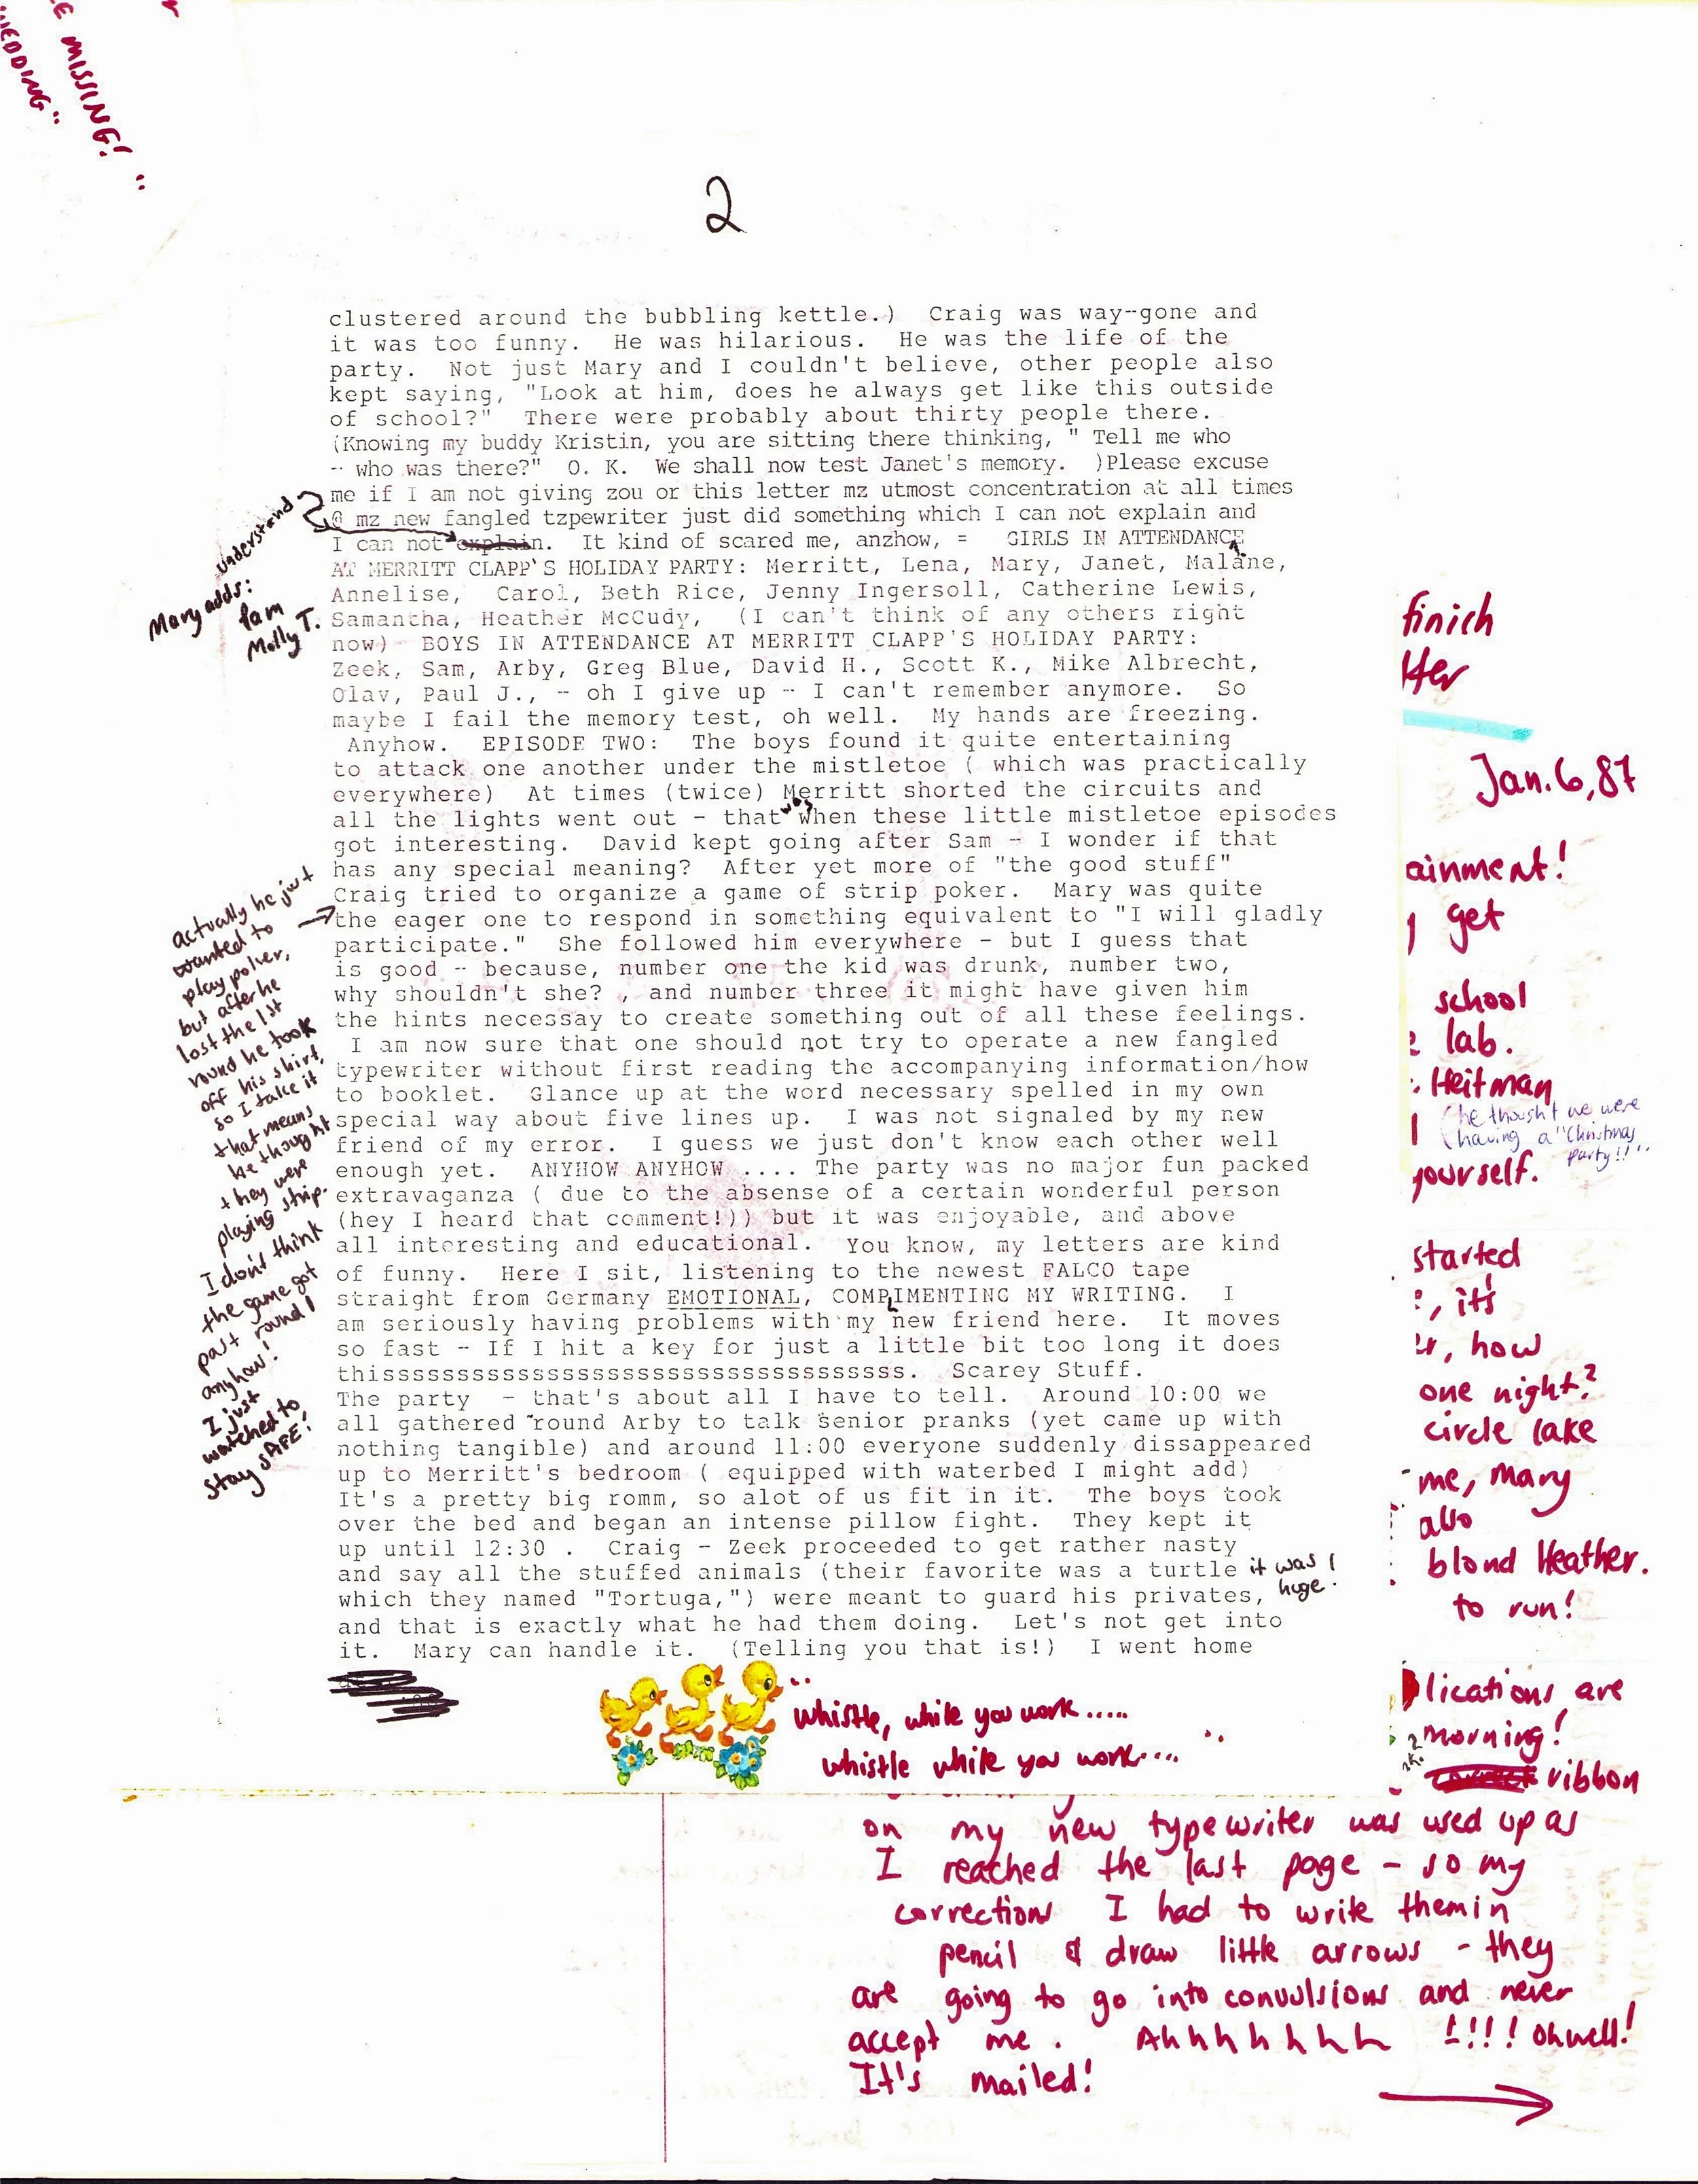 E MISSING!
WEDDING"
2
clustered around the bubbling kettle.)  Craig was way--gone and
it was too funny.  He was hilarious.  He was the life of the
party.  Not just Mary and I couldn't believe, other people also
kept saying, "Look at him, does he always get like this outside
of school?"  There were probably about thirty people there.
(Knowing my buddy Kristin, you are sitting there thinking, " Tell me who
-- who was there?"  O. K.  We shall now test Janet's memory.  )Please excuse
me if I am not giving zou or this letter mz utmost concentration at all times
@ mz new fangled tzpewriter just did something which I can not explain and
I can not explain.  It kind of scared me, anzhow, =   GIRLS IN ATTENDANCE
AT MERRITT CLAPP'S HOLIDAY PARTY: Merritt, Lena, Mary, Janet, Malane,
Annelise,  Carol, Beth Rice, Jenny Ingersoll, Catherine Lewis,
Samantha, Heather McCudy,  (I can't think of any others right
now)- BOYS IN ATTENDANCE AT MERRITT CLAPP'S HOLIDAY PARTY:
Zeek, Sam, Arby, Greg Blue, David H., Scott K., Mike Albrecht,
Olav, Paul J., - oh I give up - I can't remember anymore.  So
maybe I fail the memory test, oh well.  My hands are freezing.
Anyhow.  EPISODE TWO:  The boys found it quite entertaining
to attack one another under the mistletoe ( which was practically
everywhere)  At times (twice) Merritt shorted the circuits and
all the lights went out - that was when these little mistletoe episodes
got interesting.  David kept going after Sam - I wonder if that
has any special meaning?  After yet more of "the good stuff"
Craig tried to organize a game of strip poker.  Mary was quite
the eager one to respond in something equivalent to "I will gladly
participate."  She followed him everywhere - but I guess that
is good - because, number one the kid was drunk, number two,
why shouldn't she? , and number three it might have given him
the hints necessay to create something out of all these feelings.
I am now sure that one should not try to operate a new fangled
typewriter without first reading the accompanying information/how
to booklet.  Glance up at the word necessary spelled in my own
special way about five lines up.  I was not signaled by my new
friend of my error.  I guess we just don't know each other well
enough yet.  ANYHOW ANYHOW .... The party was no major fun packed
extravaganza ( due to the absense of a certain wonderful person
(hey I heard that comment!)) but it was enjoyable, and above
all interesting and educational.  You know, my letters are kind
of funny.  Here I sit, listening to the newest FALCO tape
straight from Germany EMOTIONAL, COMPLIMENTING MY WRITING.  I
am seriously having problems with my new friend here.  It moves
so fast - If I hit a key for just a little bit too long it does
thisssssssssssssssssssssssssssssssssss.  Scarey Stuff.
The party  - that's about all I have to tell.  Around 10:00 we
all gathered 'round Arby to talk senior pranks (yet came up with
nothing tangible) and around 11:00 everyone suddenly dissappeared
up to Merritt's bedroom ( equipped with waterbed I might add)
It's a pretty big romm, so alot of us fit in it.  The boys took
over the bed and began an intense pillow fight.  They kept it
up until 12:30 .  Craig - Zeek proceeded to get rather nasty
and say all the stuffed animals (their favorite was a turtle it was
which they named "Tortuga,") were meant to guard his privates, huge!
and that is exactly what he had them doing.  Let's not get into
it.  Mary can handle it.  (Telling you that is!)  I went home
understand
Mary adds:
Pam
Molly T.
actually he just
wanted to
play poker,
but after he
lost the 1st
round he took
off his shirt,
so I take it
that means
he thought
they were
playing strip.
I don't think
the game got
past round 1
anyhow!
I just
watched to
stay SAFE!
whistle, while you work.....
whistle while you work....
finich
tter
Jan. 6, 87
ainment!
get
school
lab.
Heitman
(he thought we were
(having a "Christmas
party!!"
yourself.
started
, it's
r, how
one night?
circle lake
me, Mary
also
blond Heather.
to run!
lications are
morning!
ribbon
on my new typewriter was used up as
I reached the last page - so my
corrections I had to write them in
pencil & draw little arrows - they
are going to go into convulsions and never
accept me. Ahhhhhhh !!!! Oh well!
It's mailed!